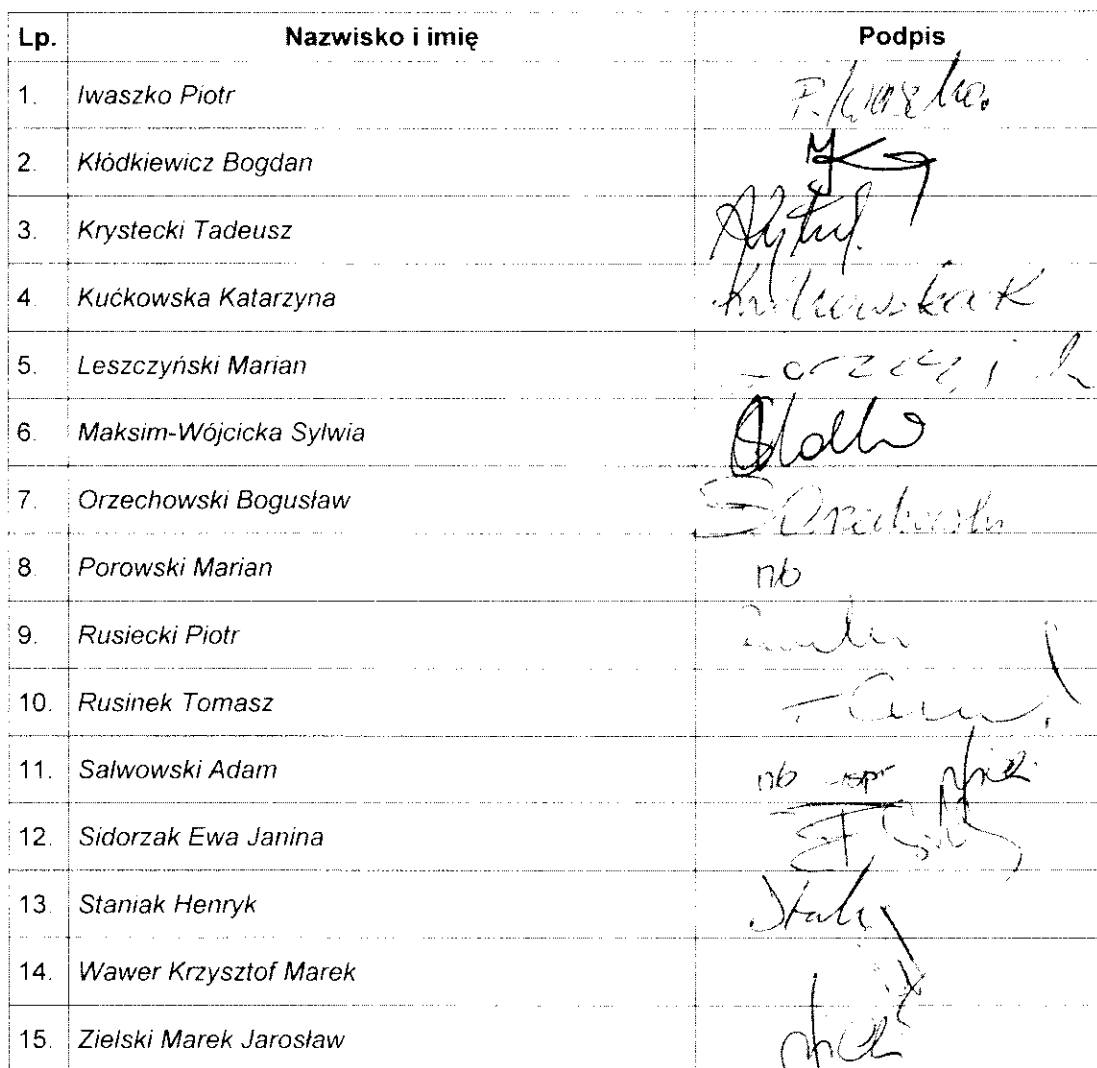 Lp. Nazwisko i imię Podpis
1. Iwaszko Piotr P. Iwaszko.
2. Kłódkiewicz Bogdan
3. Krystecki Tadeusz
4. Kućkowska Katarzyna Kućkowska K
5. Leszczyński Marian
6. Maksim-Wójcicka Sylwia
7. Orzechowski Bogusław B Orzechowski
8. Porowski Marian nb
9. Rusiecki Piotr
10. Rusinek Tomasz
11. Salwowski Adam nb
12. Sidorzak Ewa Janina
13. Staniak Henryk
14. Wawer Krzysztof Marek
15. Zielski Marek Jarosław